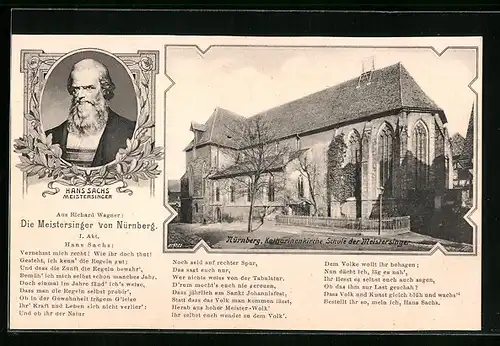 HANS SACHS
MEISTERSINGER
Nürnberg, Katharinenkirche Schule der Meistersinger
Aus Richard Wagner:
Die Meistersinger von Nürnberg.
I. Akt.
Hans Sachs:
Vernehmt mich recht! Wie ihr doch thut!
Gesteht, ich kenn' die Regeln gut;
Und dass die Zunft die Regeln bewahr',
Bemüh' ich mich selbst schon manches Jahr.
Doch einmal im Jahre fänd' ich's weise,
Dass man die Regeln selbst probir',
Ob in der Gewohnheit trägem G'leise
Ihr' Kraft und Leben sich nicht verlier':
Und ob ihr der Natur
Noch seid auf rechter Spur,
Das sagt euch nur,
Wer nichts weiss von der Tabulatur.
D'rum mocht's euch nie gereuen,
Dass jährlich am Sankt Johannisfest,
Statt dass das Volk man kommen lässt,
Herab aus hoher Meister-Wolk'
Ihr selbst euch wendet zu dem Volk'.
Dem Volke wollt ihr behagen;
Nun dächt ich, läg es nah',
Ihr liesst es selbst euch auch sagen,
Ob das ihm zur Lust geschah?
Dass Volk und Kunst gleich blüh und wachs'
Bestellt ihr so, mein ich, Hans Sachs.